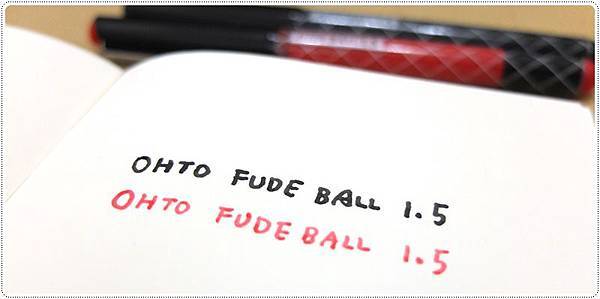 OHTO FUDE BALL 1.5
OHTO FUDE BALL 1.5